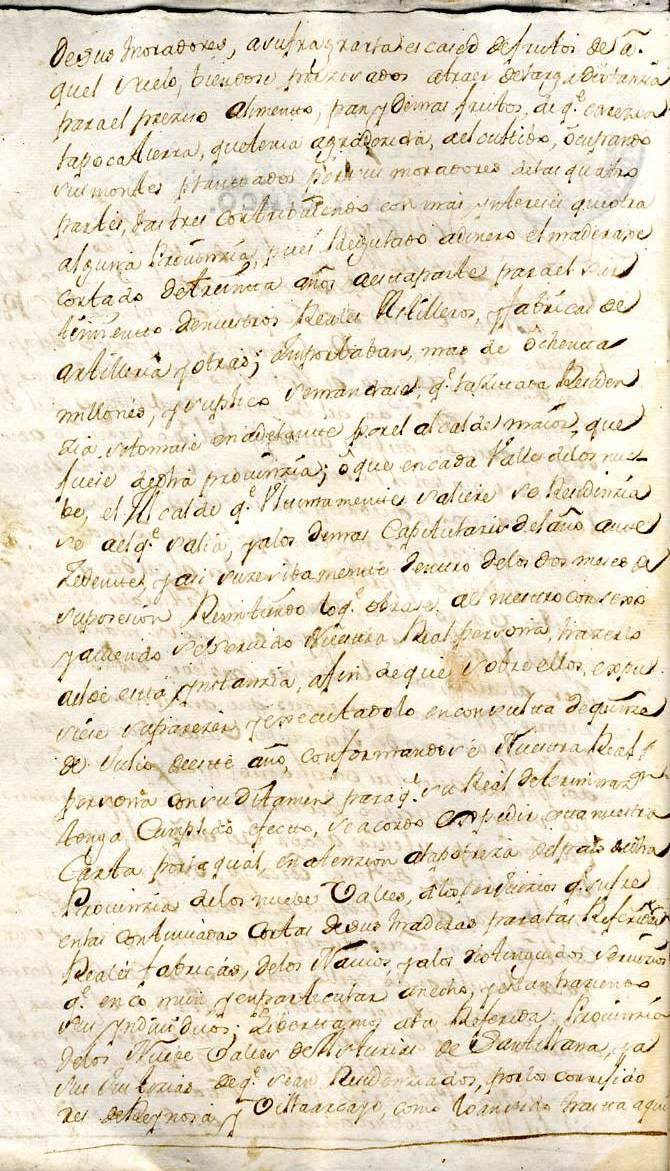 de sus moradores, a sufragar la escased de frutos de a
quel suelo, biendose prezisados atraer de larga distanzia
para el preziso alimento, pan y demas frutos, de q.e carezia
tapoca tierra, que tenia agradezida, al custido, ocupando
sus montes plantados por sus moradores delas quatro
partes, las tres contribuiendo con mas yntereses que otra
alguna Provinzia, pues Regulado a dinero el maderaje
cortado de treinta años a esta parte para el sur
timiento de nuestros Reales Astilleros, y fabricas de
artilleria y otras; ymportaban, mas de ôchenta
millones, y suplico se mandase, q.e la zitada Residen
zia, se tomase en adelante por el alcalde maior, que
fuese de dha provinzia; ô que en cada Valle delos nue-
be, el Alcalde q.e Nuebamente saliese se Residenzia
se al q.e salia, y alos demas Capitulares del año ante
zedente, y asi suzesibamente dentro delos dos meses de
su posesion Remitiendo lo q.e obrase, al nuestro consexo
y aviendo se servido Nuestra Real persona, hazerlo
de esta ynstanzia, afin de que sobre ellos, expu
siese su parezer, y executadolo en consulta de quinze
de Julio de este año, conformandose Nuestra Real
persona con su dictamen para q.e su Real determinaz.on
tenga Cumplido efecto, se acordo expedir esta nuestra
Carta por la qual, en atenzion ala pobreza del pais de dha
Provinzia delos nuebe Valles, alos perjuizios q.e sufre
en las continuadas cortas de sus maderas para las Referidas
Reales fabricas, delos Navios, y alos distinguidos servizios
q.e en comun, y en particular an echo, y estan haziendo
sus yndividuos: Libertamos ala Referida Provinzia
delos Nuebe Valles de Asturias de Santillana, y a
sus Justizias de q.e sean Residenziados, por los corregido
res de Reynosa y Villarcayo, como lo an sido hasta aqui